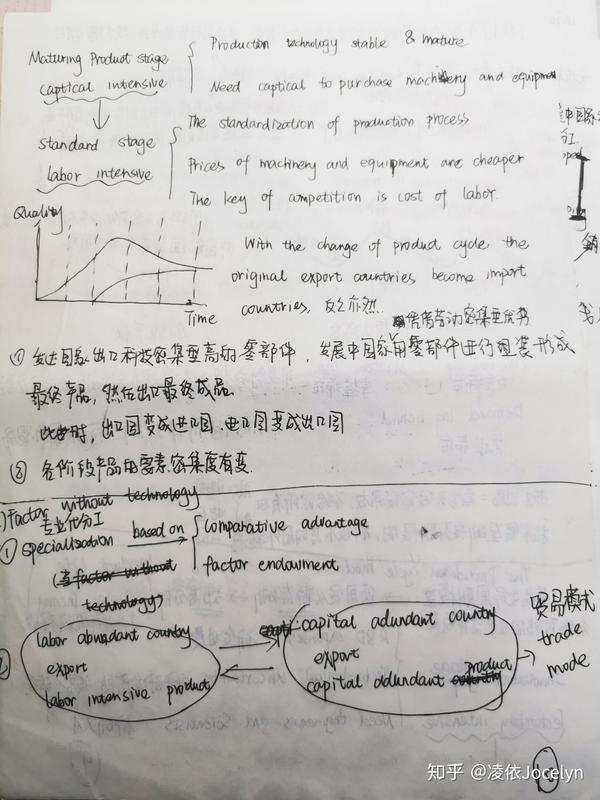 Maturing Product stage
captical intensive
Production technology stable & mature
Need captical to purchase machinery and equipment
standard stage
labor intensive
The standardization of production process
Prices of machinery and equipment are cheaper
The key of competition is cost of labor.
Quality
Time
With the change of product cycle, the
original export countries become import
countries, 反之亦然
凭借劳动密集型优势
① 发达国家出口科技密集型高的零部件, 发展中国家用零部件进行组装形成
最终产品, 然后出口最终成品.
此时, 出口国变成进口国. 进口国变成出口国
② 各阶段产品的要素密集度有变.
Factor without technology
专业化分工
① specialization based on
comparative advantage
factor endowment
(factor without
technology)
labor abundant country
export
labor intensive product
capital adundant country
export
capital adundant product
贸易模式
trade
mode
知乎 @凌依Jocelyn